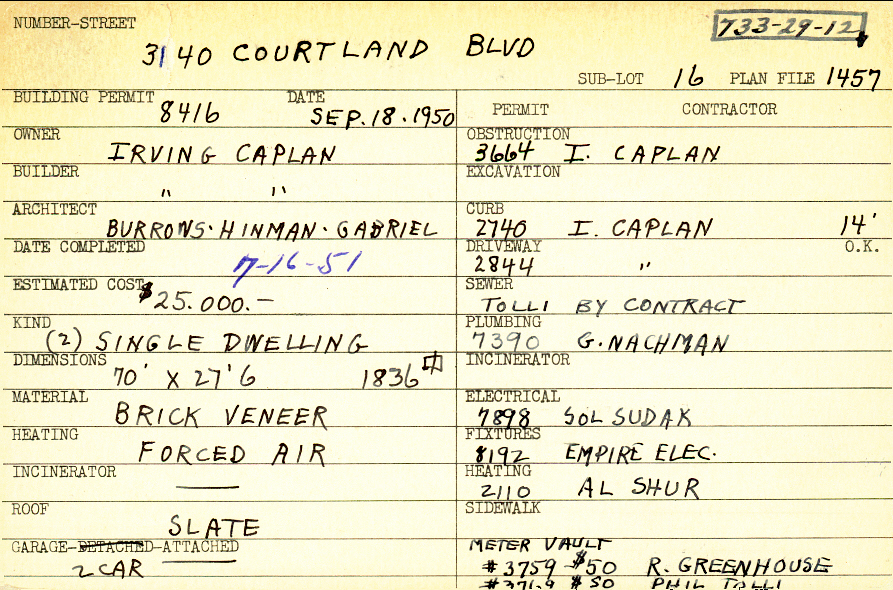 NUMBER-STREET
733-29-12
3140 COURTLAND BLVD
SUB-LOT 16 PLAN FILE 1457
BUILDING PERMIT 8416 DATE SEP. 18. 1950
OWNER IRVING CAPLAN
BUILDER " "
ARCHITECT BURROWS·HINMAN·GABRIEL
DATE COMPLETED 7-16-51
ESTIMATED COST $25.000.-
KIND (2) SINGLE DWELLING
DIMENSIONS 70' X 27'6 1836
MATERIAL BRICK VENEER
HEATING FORCED AIR
INCINERATOR —
ROOF SLATE
GARAGE-DETACHED-ATTACHED
2 CAR
PERMIT CONTRACTOR
OBSTRUCTION 3664 I. CAPLAN
EXCAVATION
CURB 2740 I. CAPLAN 14'
DRIVEWAY 2844 " O.K.
SEWER TOLLI BY CONTRACT
PLUMBING 7390 G. NACHMAN
INCINERATOR
ELECTRICAL 7898 SOL SUDAK
FIXTURES 8192 EMPIRE ELEC.
HEATING 2110 AL SHUR
SIDEWALK
METER VAULT
#3759 - $50 R. GREENHOUSE
#3769 $50 PHIL TOLLI